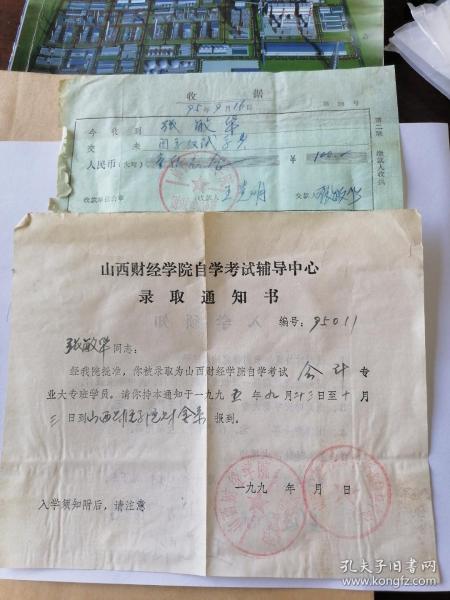 收 据
95年9月16日
今收到 张敏华
交来
人民币(大写) ¥ 100.00
收款单位公章 收款人 王黄明 交款人 张敏华
第二联
山西财经学院自学考试辅导中心
录取通知书
编号:95011
张敏华同志:
经我院批准,你被录取为山西财经学院自学考试 会计 专
业大专班学员。请你持本通知于一九九五年九月廿三日至十月
三日到山西财经学院 报到。
一九九 年 月 日
入学须知附后,请注意
孔夫子旧书网
www.kongfz.com